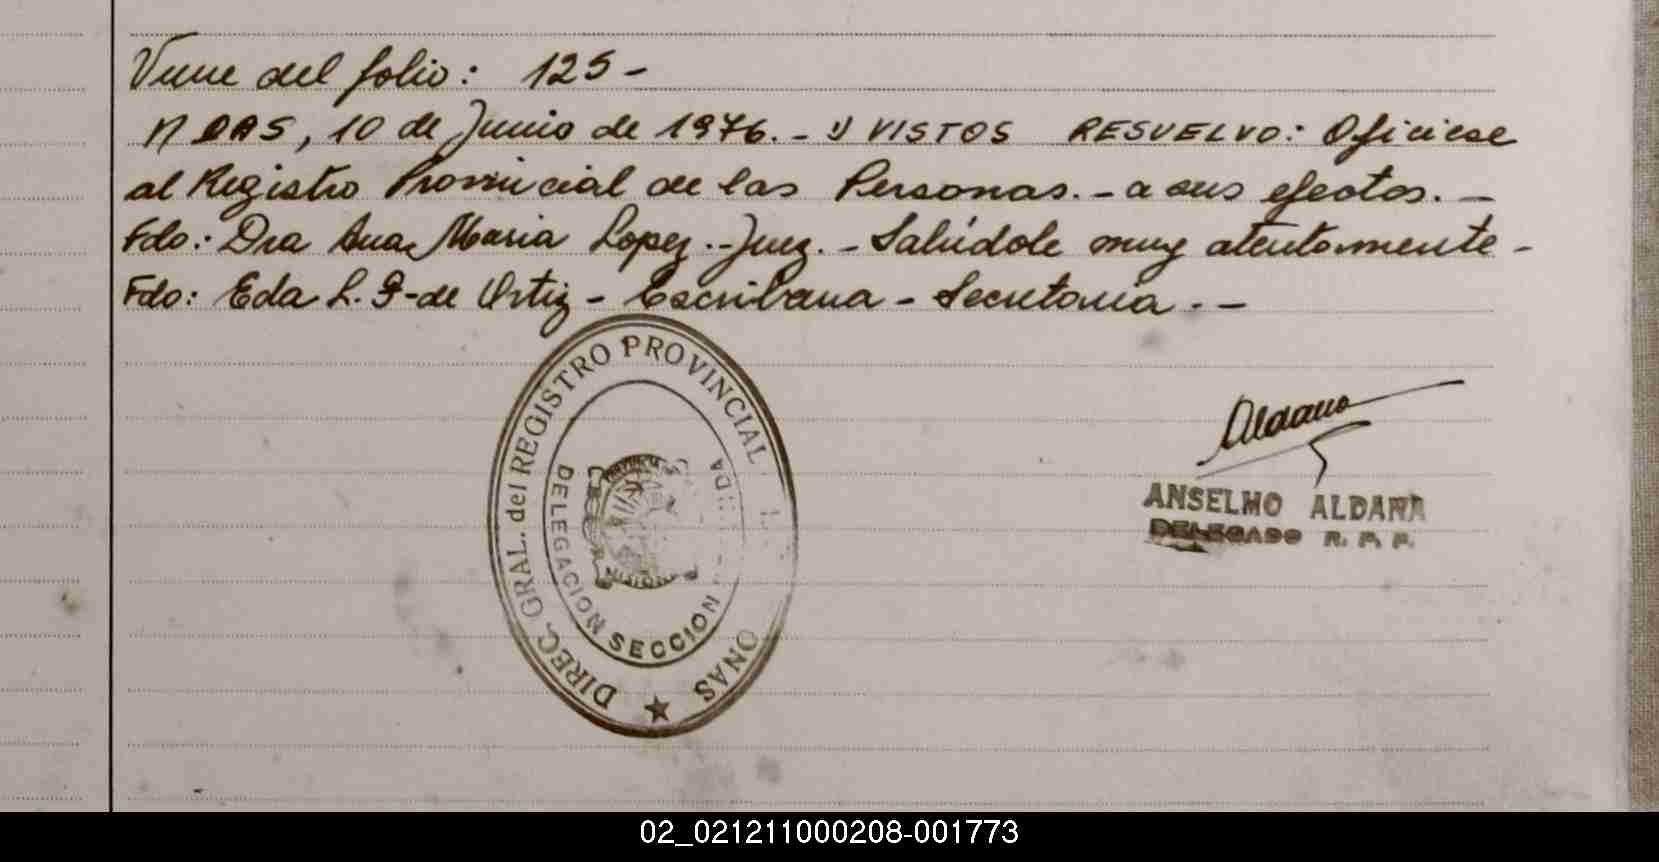 Viene del folio: 125 -
, 10 de Junio de 1976. - VISTOS RESUELVO: Ofíciese
al Registro Provincial de las Personas. - a sus efectos. -
Fdo.: Dra Ana Maria Lopez. - Juez. - Salúdole muy atentamente -
Fdo: Eda L. G-de Ortiz - Escribana - Secretaria. -
DIREC. GRAL. del REGISTRO PROVINCIAL ONAS
DELEGACION SECCION
MISIONES
Aldana
ANSELMO ALDANA
DELEGADO R. P. P.
02_021211000208-001773